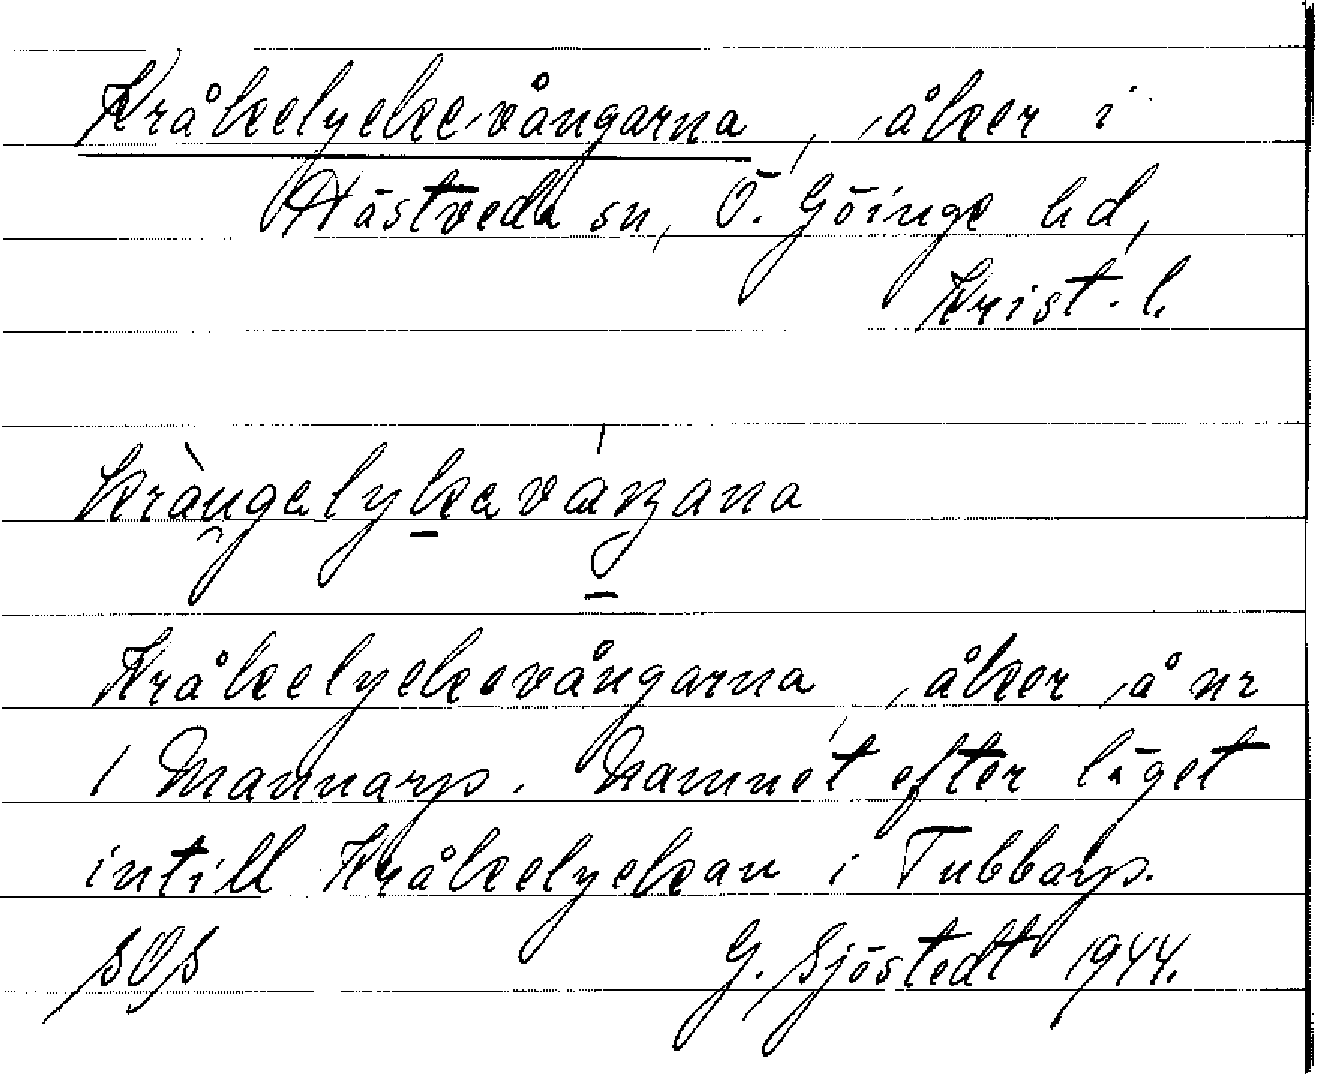 Kråkelyckevångarna, åker i
Hästveda sn, Ö. Göinge hd,
Krist. l.
Kråkelyckevångarna, åker, å nr
1 Mannarp. Namnet efter läget
intill Kråkelyckan i Tubbarp.
SOS G. Sjöstedt 1944.